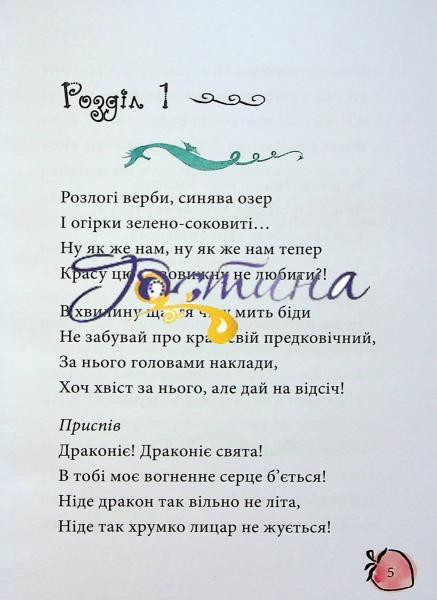 Розділ 1
Розлогі верби, синява озер
І огірки зелено-соковиті…
Ну як же нам, ну як же нам тепер
Красу цю дивовижну не любити?!
Гостина
В хвилину щастя чи у мить біди
Не забувай про край свій предковічний,
За нього головами наклади,
Хоч хвіст за нього, але дай на відсіч!
Приспів
Драконіє! Драконіє свята!
В тобі моє вогненне серце б’ється!
Ніде дракон так вільно не літа,
Ніде так хрумко лицар не жується!
5